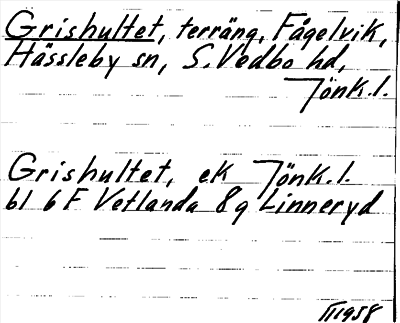 Grishultet, terräng, Fågelvik,
Hässleby sn, S. Vedbo hd,
Jönk.l.
Grishultet, ek Jönk.l.
bl 6F Vetlanda 8g Linneryd
III 1958